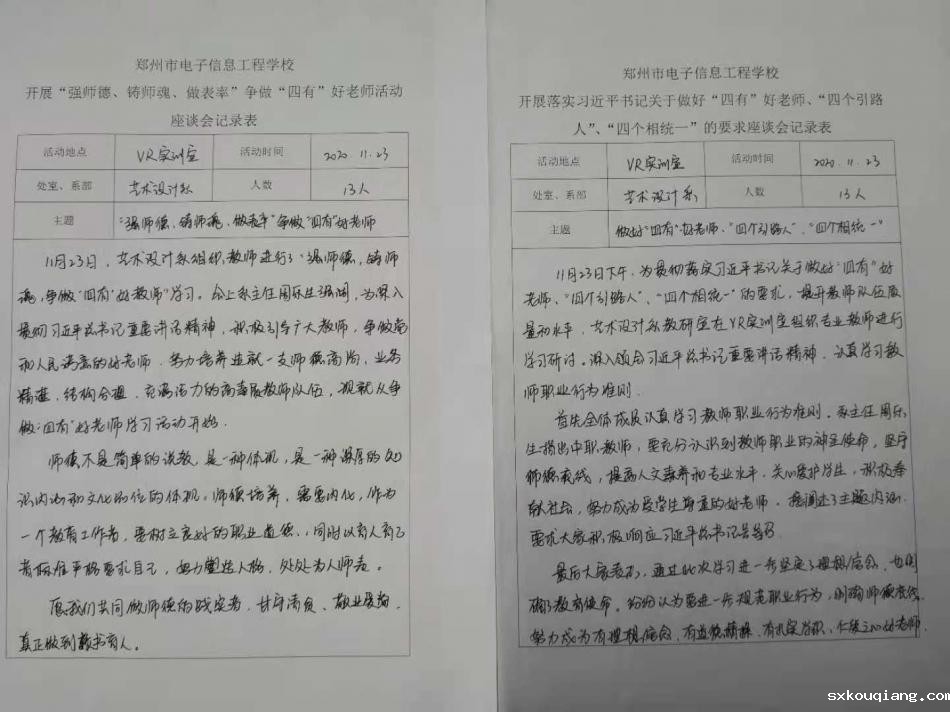 郑州市电子信息工程学校
开展“强师德、铸师魂、做表率”争做“四有”好老师活动
座谈会记录表
活动地点 VR实训室 活动时间 2020.11.23
处室、系部 艺术设计系 人数 13人
主题 “强师德、铸师魂、做表率”争做“四有”好老师
11月23日，艺术设计系组织教师进行了“强师德，铸师
魂，争做“四有”好教师”学习。会上系主任周乐生强调，为深入
贯彻习近平总书记重要讲话精神，积极引导广大教师，争做党
和人民满意的好老师，努力培养造就一支师德高尚，业务
精湛，结构合理，充满活力的高素质教师队伍，现就从争
做“四有”好老师学习活动开始.
师德不是简单的说教，是一种体现，是一种深厚的知
识内涵和文化品位的体现。师德培养，需要内化，作为
一个教育工作者，要树立良好的职业道德，同时以育人育己
者标准严格要求自己，努力塑造人格，处处为人师表。
愿我们共同做师德的践定者，甘守清贫、敬业爱岗，
真正做到教书育人。
郑州市电子信息工程学校
开展落实习近平书记关于做好“四有”好老师、“四个引路
人”、“四个相统一”的要求座谈会记录表
活动地点 VR实训室 活动时间 2020.11.23
处室、系部 艺术设计系 人数 13人
主题 做好“四有”好老师、“四个引路人”、“四个相统一”
11月23日下午，为贯彻落实习近平书记关于做好“四有”好
老师、“四个引路人”、“四个相统一”的要求，提升教师队伍质
量和水平，艺术设计系教研室在VR实训室组织专业教师进行
学习研讨。深入领会习近平总书记重要讲话精神，认真学习教
师职业行为准则.
首先全体成员认真学习教师职业行为准则。系主任周乐
生指出中职教师，要充分认识到教师职业的神圣使命，坚守
师德底线，提高人文素养和专业水平，关心爱护学生，积极奉
献社会，努力成为受学生尊重的好老师。阐述了主题内涵
要求大家积极响应习近平总书记号召
最后大家表示，通过此次学习进一步坚定了理想信念，也明
确了教育使命。纷纷认为要进一步规范职业行为，明确师德底线，
努力成为有理想信念，有道德情操，有扎实学识，仁爱之心好老师.
www.sxkouqiang.com